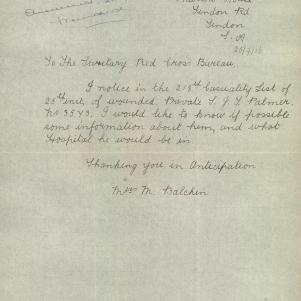 Lindon Rd
Lindon
S. A
26/7/16
To The Secretary Red Cross Bureau,
I notice in the 218th Casuality List of
25th inst, of wounded, Private S. J. L Palmer,
No 3545. I would like to know if possible
some information about him, and what
Hospital he would be in
Thanking you in Anticipation
Mrs M. Balchin